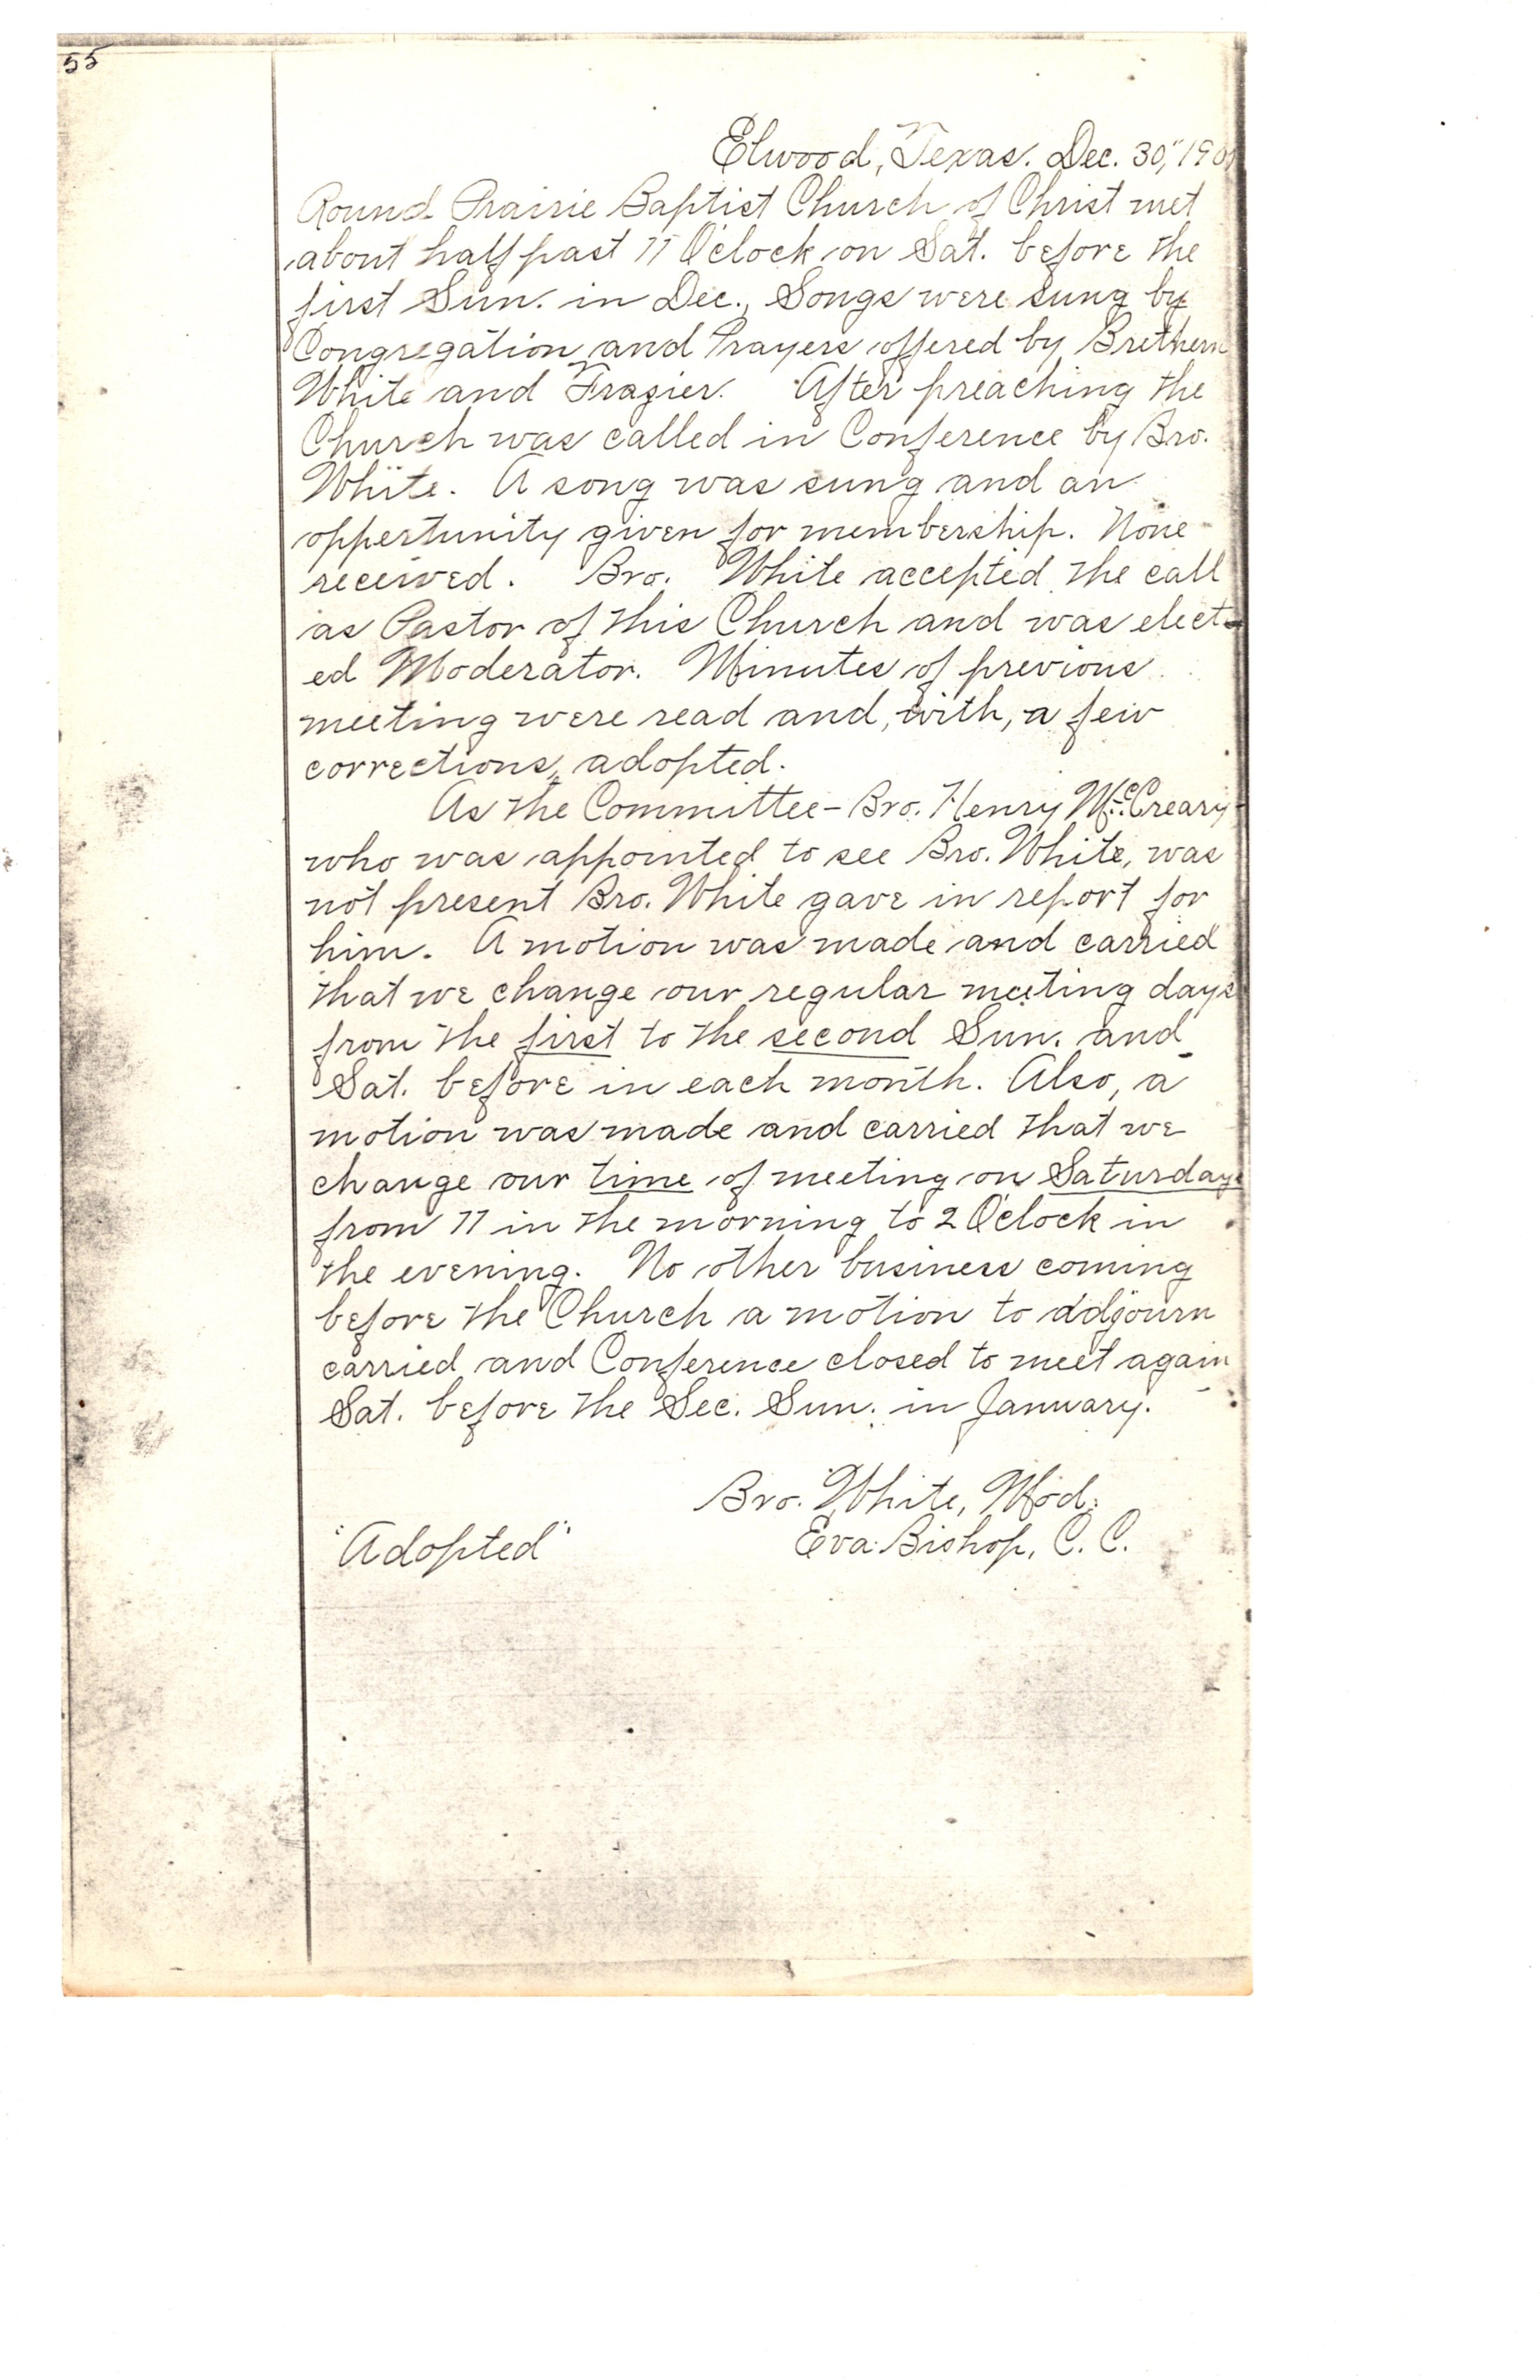 55
Elwood, Texas. Dec. 30," 190
Round Prairie Baptist Church of Christ met
about half past 11 O'clock on Sat. before the
first Sun. in Dec., Songs were sung by
Congregation and Prayers offered by Brethern
White and Frazier. After preaching the
Church was called in Conference by Bro.
White. A song was sung and an
oppertunity given for membership. None
received. Bro. White accepted the call
as Pastor of this Church and was elect-
ed Moderator. Minutes of previous
meeting were read and, with, a few
corrections, adopted.
As the Committee - Bro. Henry McCreary -
who was appointed to see Bro. White, was
not present Bro. White gave in report for
him. A motion was made and carried
that we change our regular meeting days
from the first to the second Sun. and
Sat. before in each month. Also, a
motion was made and carried that we
change our time of meeting on Saturdays
from 11 in the morning to 2 O'clock in
the evening. No other business coming
before the Church a motion to adjourn
carried and Conference closed to meet again
Sat. before the Sec. Sun. in January.
Bro. White, Mod.
Eva Bishop, C. C.
"Adopted"